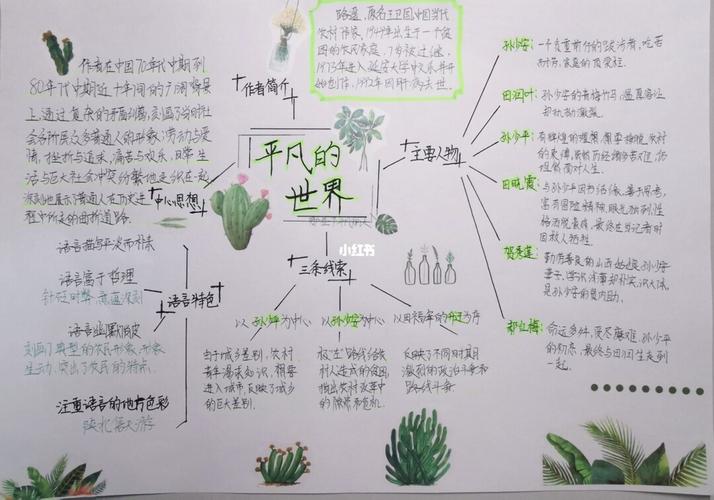 平凡的
世界
小红书
作者简介
路遥,原名王卫国,中国当代
农村作家,1949年出生于一个贫
困的农民家庭,7岁被过继,
1973年进入延安大学中文系并开
始创作,1992年因肝病去世。
中心思想
作者在中国70年代中期到
80年代中期近十年间的广阔背景
上,通过复杂的矛盾纠葛,刻画了当时社
会各阶层众多普通人的形象,劳动与爱
情,挫折与追求,痛苦与欢乐,日常生
活与巨大社会冲突纷繁地交织在一起
深刻地展示了普通人在历史进
程中所走的曲折道路。
主要人物
孙少安:
一个负重前行的跋涉者,吃苦
耐劳,家庭的顶梁柱。
田润叶:
孙少安的青梅竹马,温柔善让
却
孙少平:
的理想
田晓霞:
与孙少平因书结缘,善于思考,
富有冒险精神,眼光独到,性
最终在当记者时
因救人牺牲
贺秀莲:
勤劳善良的山西姑娘,孙少安
妻子,学识浅薄却朴实,识大体,
是孙少安的贤内助。
郝红梅:
命运多舛,受尽磨难,孙少平
的初恋,最终与田润生走到
一起。
语言特色
语言描写平淡而朴素
语言富于哲理
针砭时弊
语言幽默俏皮
刻画了典型的农民形象,形象
生动,突出了农民的特点。
注重语言的地方色彩
陕北信天游
三条线索
以孙少平为中心
由于城乡差别,农村
青年渴求知识,想要
进入城市,反映了城乡
的巨大差别。
以孙少安为中心
极"左"路线给农
村人造成的贫困,
指出农村改革中
的
以田福军的升迁为序
反映了不同时期
激烈的政治斗争和
路线斗争